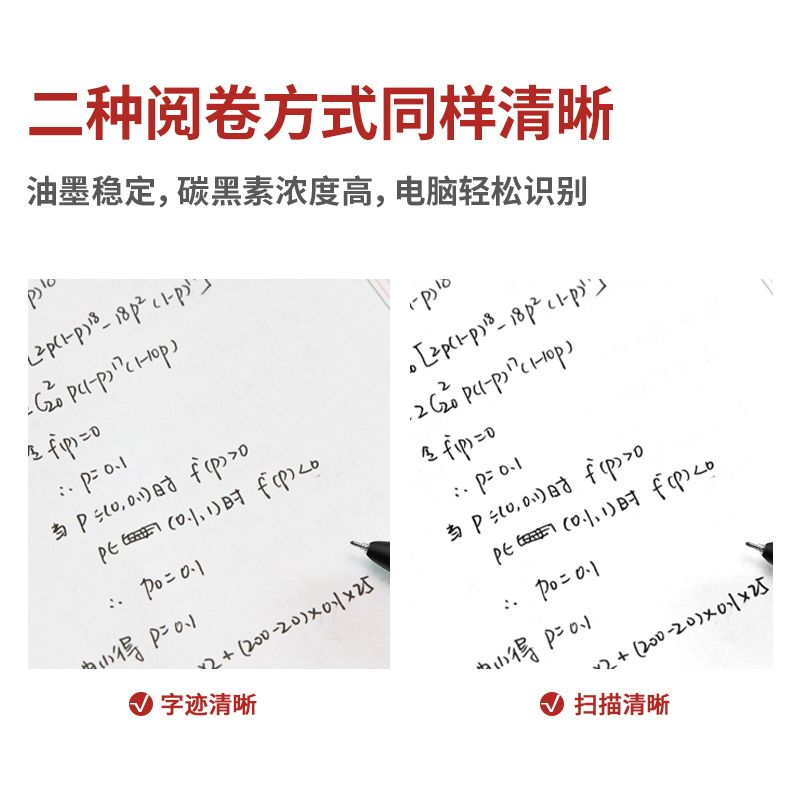 二种阅卷方式同样清晰
油墨稳定，碳黑素浓度高，电脑轻松识别
-p)¹⁰
[2p(1-p)¹⁸-18p²(1-p)¹⁷]
2C²₂₀p(1-p)¹⁷(1-10p)
f'(p)=0
∴ p=0.1
当 p∈(0,0.1)时 f'(p)>0
p∈ (0.1,1)时 f'(p)<0
∴ p₀=0.1
得 p=0.1
×2+(200-20)×0.1×25
字迹清晰
-p)¹⁰
[2p(1-p)¹⁸-18p²(1-p)¹⁷]
2C²₂₀p(1-p)¹⁷(1-10p)
f'(p)=0
∴ p=0.1
当 p∈(0,0.1)时 f'(p)>0
p∈ (0.1,1)时 f'(p)<0
∴ p₀=0.1
得 p=0.1
×2+(200-20)×0.1×25
扫描清晰